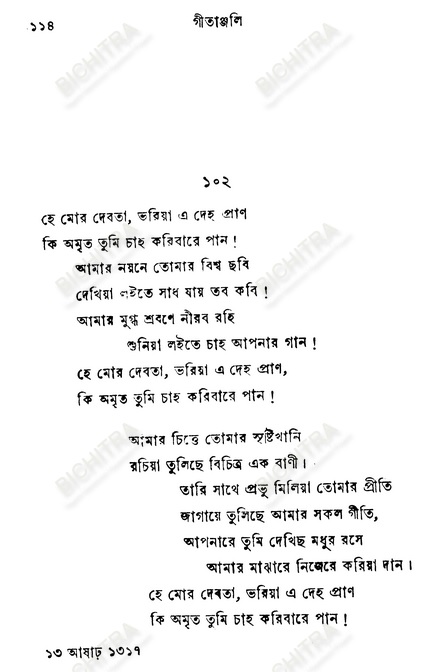 ১১৪
গীতাঞ্জলি
১০২
হে মোর দেবতা, ভরিয়া এ দেহ প্রাণ
কি অমৃত তুমি চাহ করিবারে পান !
আমার নয়নে তোমার বিশ্ব ছবি
দেখিয়া লইতে সাধ যায় তব কবি !
আমার মুগ্ধ শ্রবণে নীরব রহি
শুনিয়া লইতে চাহ আপনার গান !
হে মোর দেবতা, ভরিয়া এ দেহ প্রাণ,
কি অমৃত তুমি চাহ করিবারে পান !
আমার চিত্তে তোমার সৃষ্টিখানি
রচিয়া তুলিছে বিচিত্র এক বাণী।
তারি সাথে প্রভু মিলিয়া তোমার প্রীতি
জাগায়ে তুলিছে আমার সকল গীতি,
আপনারে তুমি দেখিছ মধুর রসে
আমার মাঝারে নিজেরে করিয়া দান।
হে মোর দেবতা, ভরিয়া এ দেহ প্রাণ
কি অমৃত তুমি চাহ করিবারে পান !
১৩ আষাঢ় ১৩১৭
BICHITRA
BICHITRA
BICHITRA
BICHITRA
BICHITRA
BICHITRA